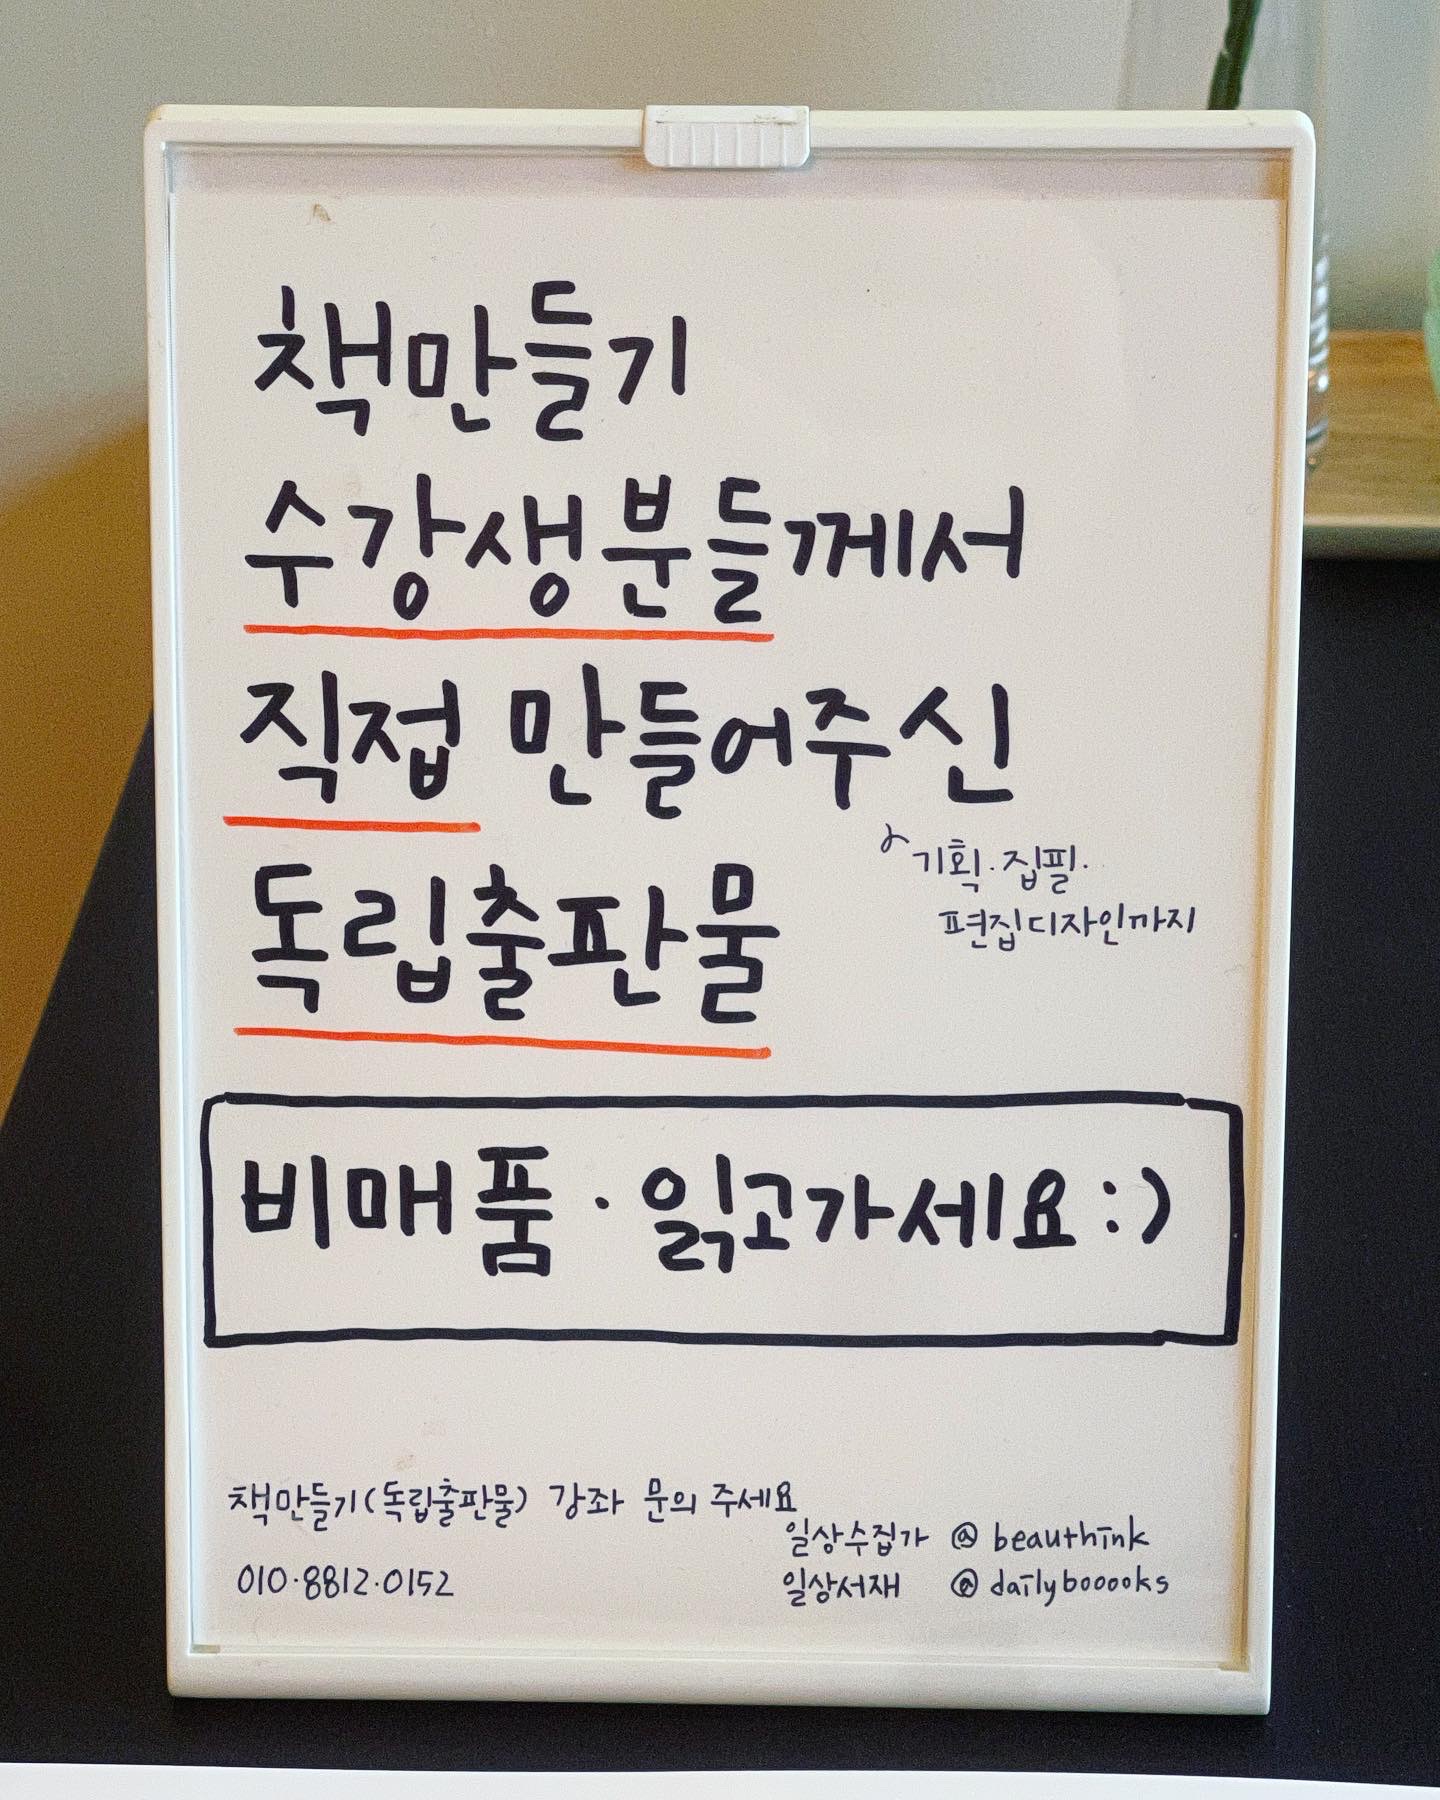 책만들기
수강생분들께서
직접 만들어주신
기획·집필·
편집디자인까지
독립출판물
비매품·읽고가세요:)
책만들기(독립출판물) 강좌 문의 주세요
일상수집가 @ beauthink
010·8812·0152
일상서재 @ dailybooooks